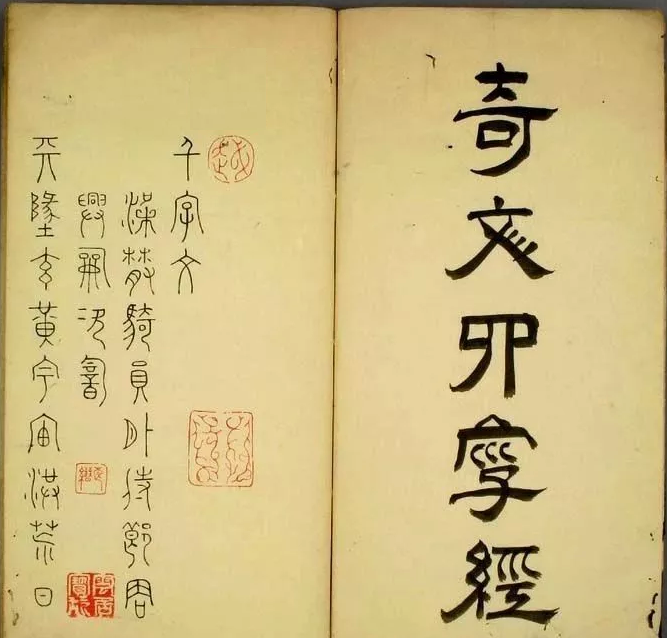 奇文經
千字文
梁散騎員外侍郎周
興嗣次韻
天墬玄黃宇宙洪荒日